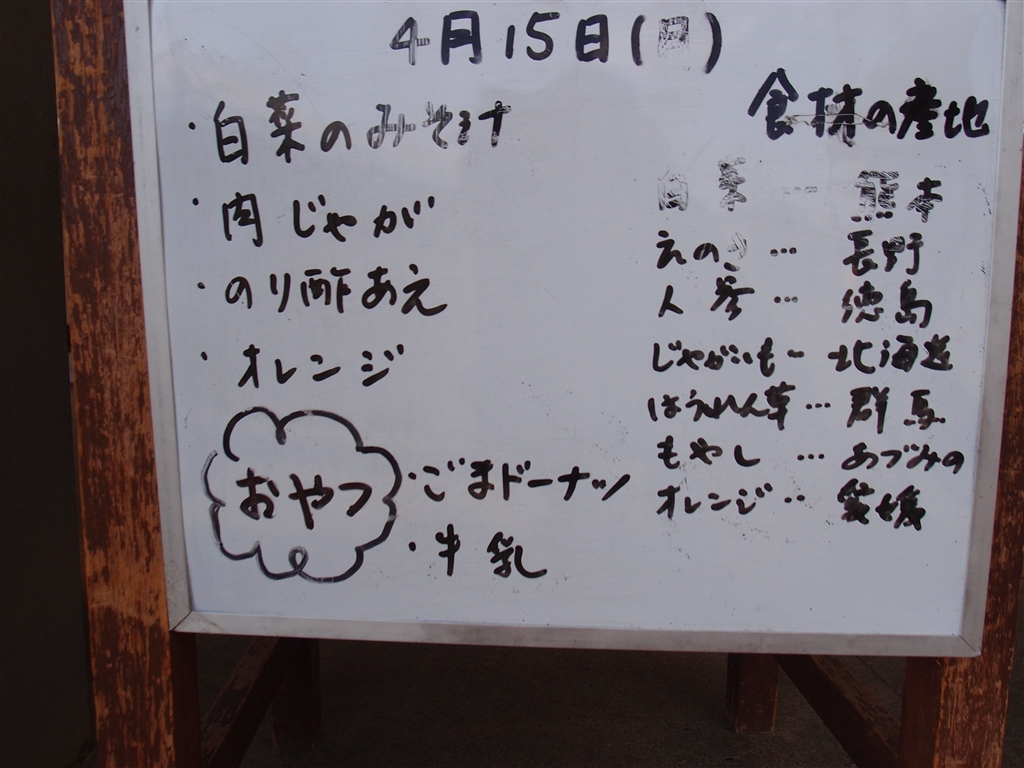 4月15日(月)
・白菜のみそ汁
・肉じゃが
・のり酢あえ
・オレンジ
おやつ
・ごまドーナツ
・牛乳
食材の産地
白菜…熊本
えのき…長野
人参…徳島
じゃがいも…北海道
ほうれん草…群馬
もやし…あづみの
オレンジ‥愛媛